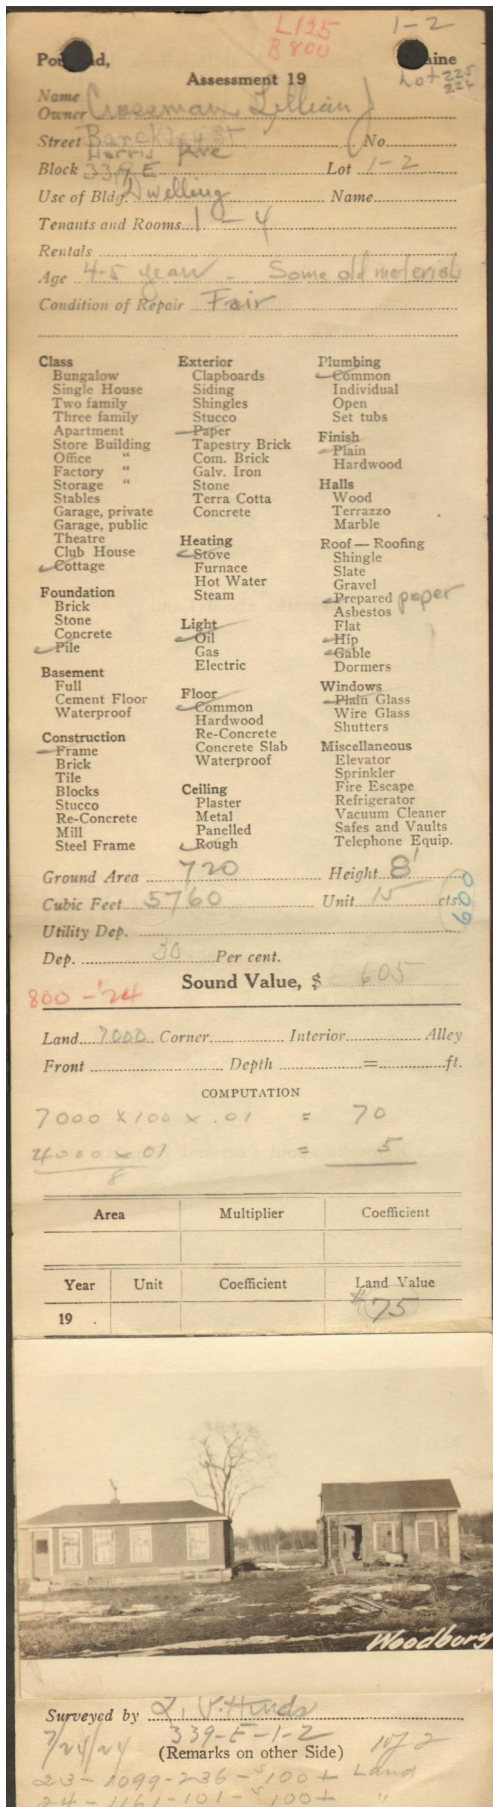 L125 1-2
B 800
Por   d,   aine
Assessment 19 Lot 225
224
Name
Owner Crossman Lillian J
Street Barckley St No.
Norris Ave
Block 339 E Lot 1-2
Use of Bldg. Dwelling Name
Tenants and Rooms 1 - 4
Rentals
Age 4-5 years - Some old material
Condition of Repair Fair
Class
Bungalow
Single House
Two family
Three family
Apartment
Store Building
Office "
Factory "
Storage "
Stables
Garage, private
Garage, public
Theatre
Club House
Cottage
Foundation
Brick
Stone
Concrete
Pile
Basement
Full
Cement Floor
Waterproof
Construction
Frame
Brick
Tile
Blocks
Stucco
Re-Concrete
Mill
Steel Frame
Exterior
Clapboards
Siding
Shingles
Stucco
Paper
Tapestry Brick
Com. Brick
Galv. Iron
Stone
Terra Cotta
Concrete
Heating
Stove
Furnace
Hot Water
Steam
Light
Oil
Gas
Electric
Floor
Common
Hardwood
Re-Concrete
Concrete Slab
Waterproof
Ceiling
Plaster
Metal
Panelled
Rough
Plumbing
Common
Individual
Open
Set tubs
Finish
Plain
Hardwood
Halls
Wood
Terrazzo
Marble
Roof — Roofing
Shingle
Slate
Gravel
Prepared paper
Asbestos
Flat
Hip
Gable
Dormers
Windows
Plain Glass
Wire Glass
Shutters
Miscellaneous
Elevator
Sprinkler
Fire Escape
Refrigerator
Vacuum Cleaner
Safes and Vaults
Telephone Equip.
Ground Area 720 Height 8'
Cubic Feet 5760 Unit 15 cts.
600
Utility Dep.
Dep. 30 Per cent.
Sound Value, $ 605
800 - '24
Land 7000 Corner Interior Alley
Front Depth = ft.
COMPUTATION
7000 x 100 x .01 = 70
4000 x 01 = 5
8
Area Multiplier Coefficient
Year Unit Coefficient Land Value
19 . $75
Woodbury
Surveyed by L. P. Hinds
7/24/24 339-E-1-2
(Remarks on other Side) 1 of 2
23-1099-236-$100+ Land
24-1161-101-$100+ "